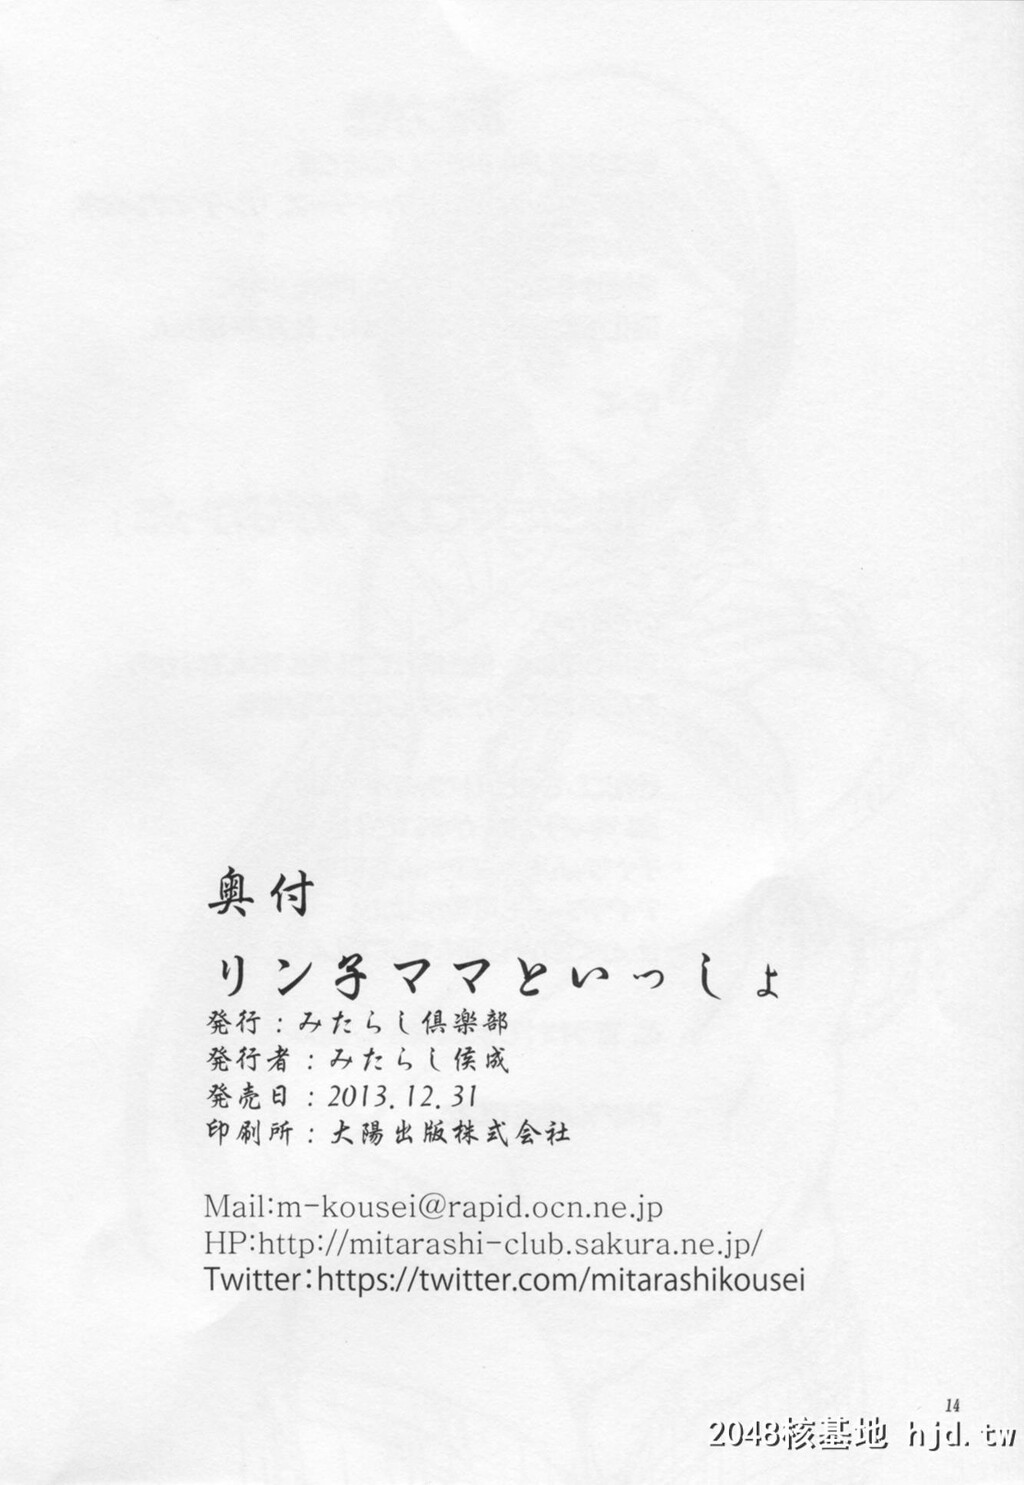 奥付
リン子ママといっしょ
発行：みたらし倶楽部
発行者：みたらし侯成
発売日：2013.12.31
印刷所：大陽出版株式会社
Mail:m-kousei@rapid.ocn.ne.jp
HP:http://mitarashi-club.sakura.ne.jp/
Twitter:https://twitter.com/mitarashikousei
14
2048核基地 hjd.tw